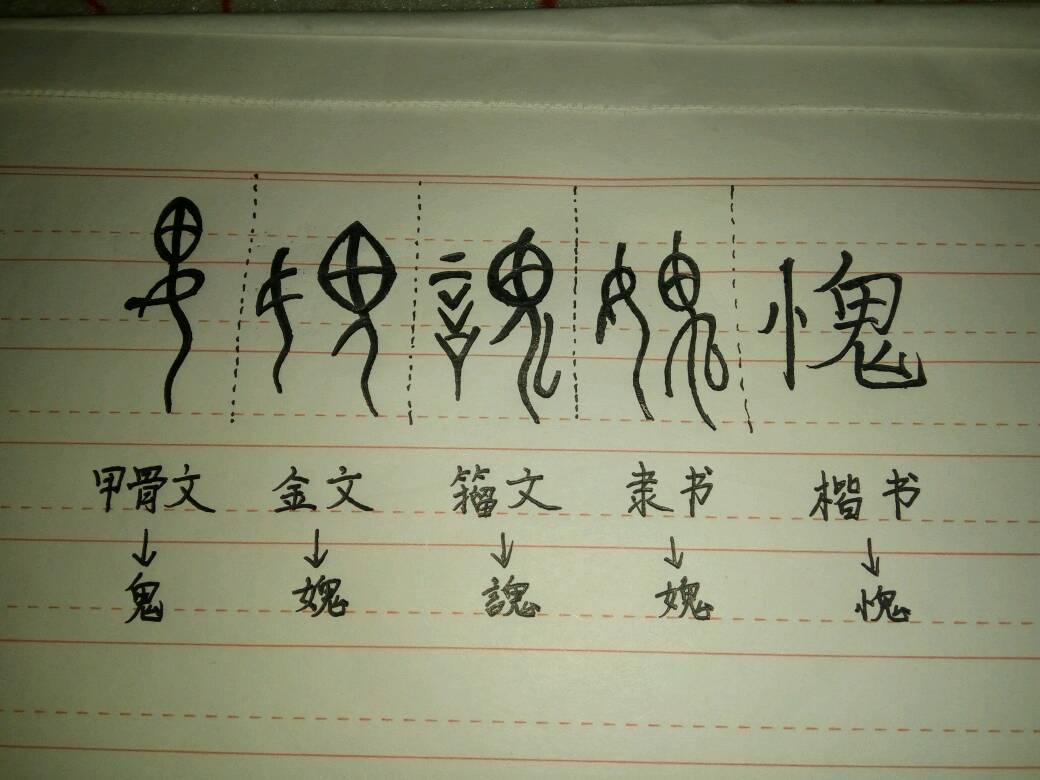 鬼 媿 謉 媿 愧
甲骨文 金文 籀文 隶书 楷书
↓ ↓ ↓ ↓ ↓
鬼 媿 謉 媿 愧